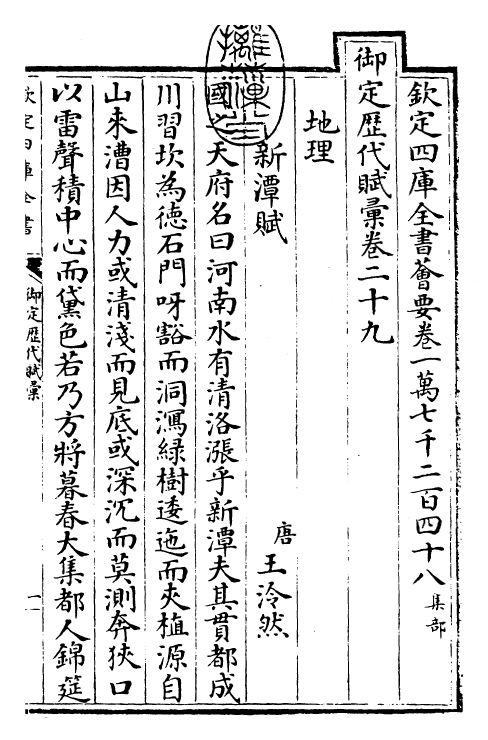 欽定四庫全書薈要卷一萬七千二百四十八 集部
御定歷代賦彙卷二十九
地理
新潭賦
唐 王泠然
國之天府名曰河南水有清洛漲乎新潭夫其貫都成
川習坎為德石門呀豁而洞瀉綠樹逶迤而夾植源自
山來漕因人力或清淺而見底或深沉而莫測奔狹口
以雷聲積中心而黛色若乃方將暮春大集都人錦筵
欽定四庫全書
御定歷代賦彙
一